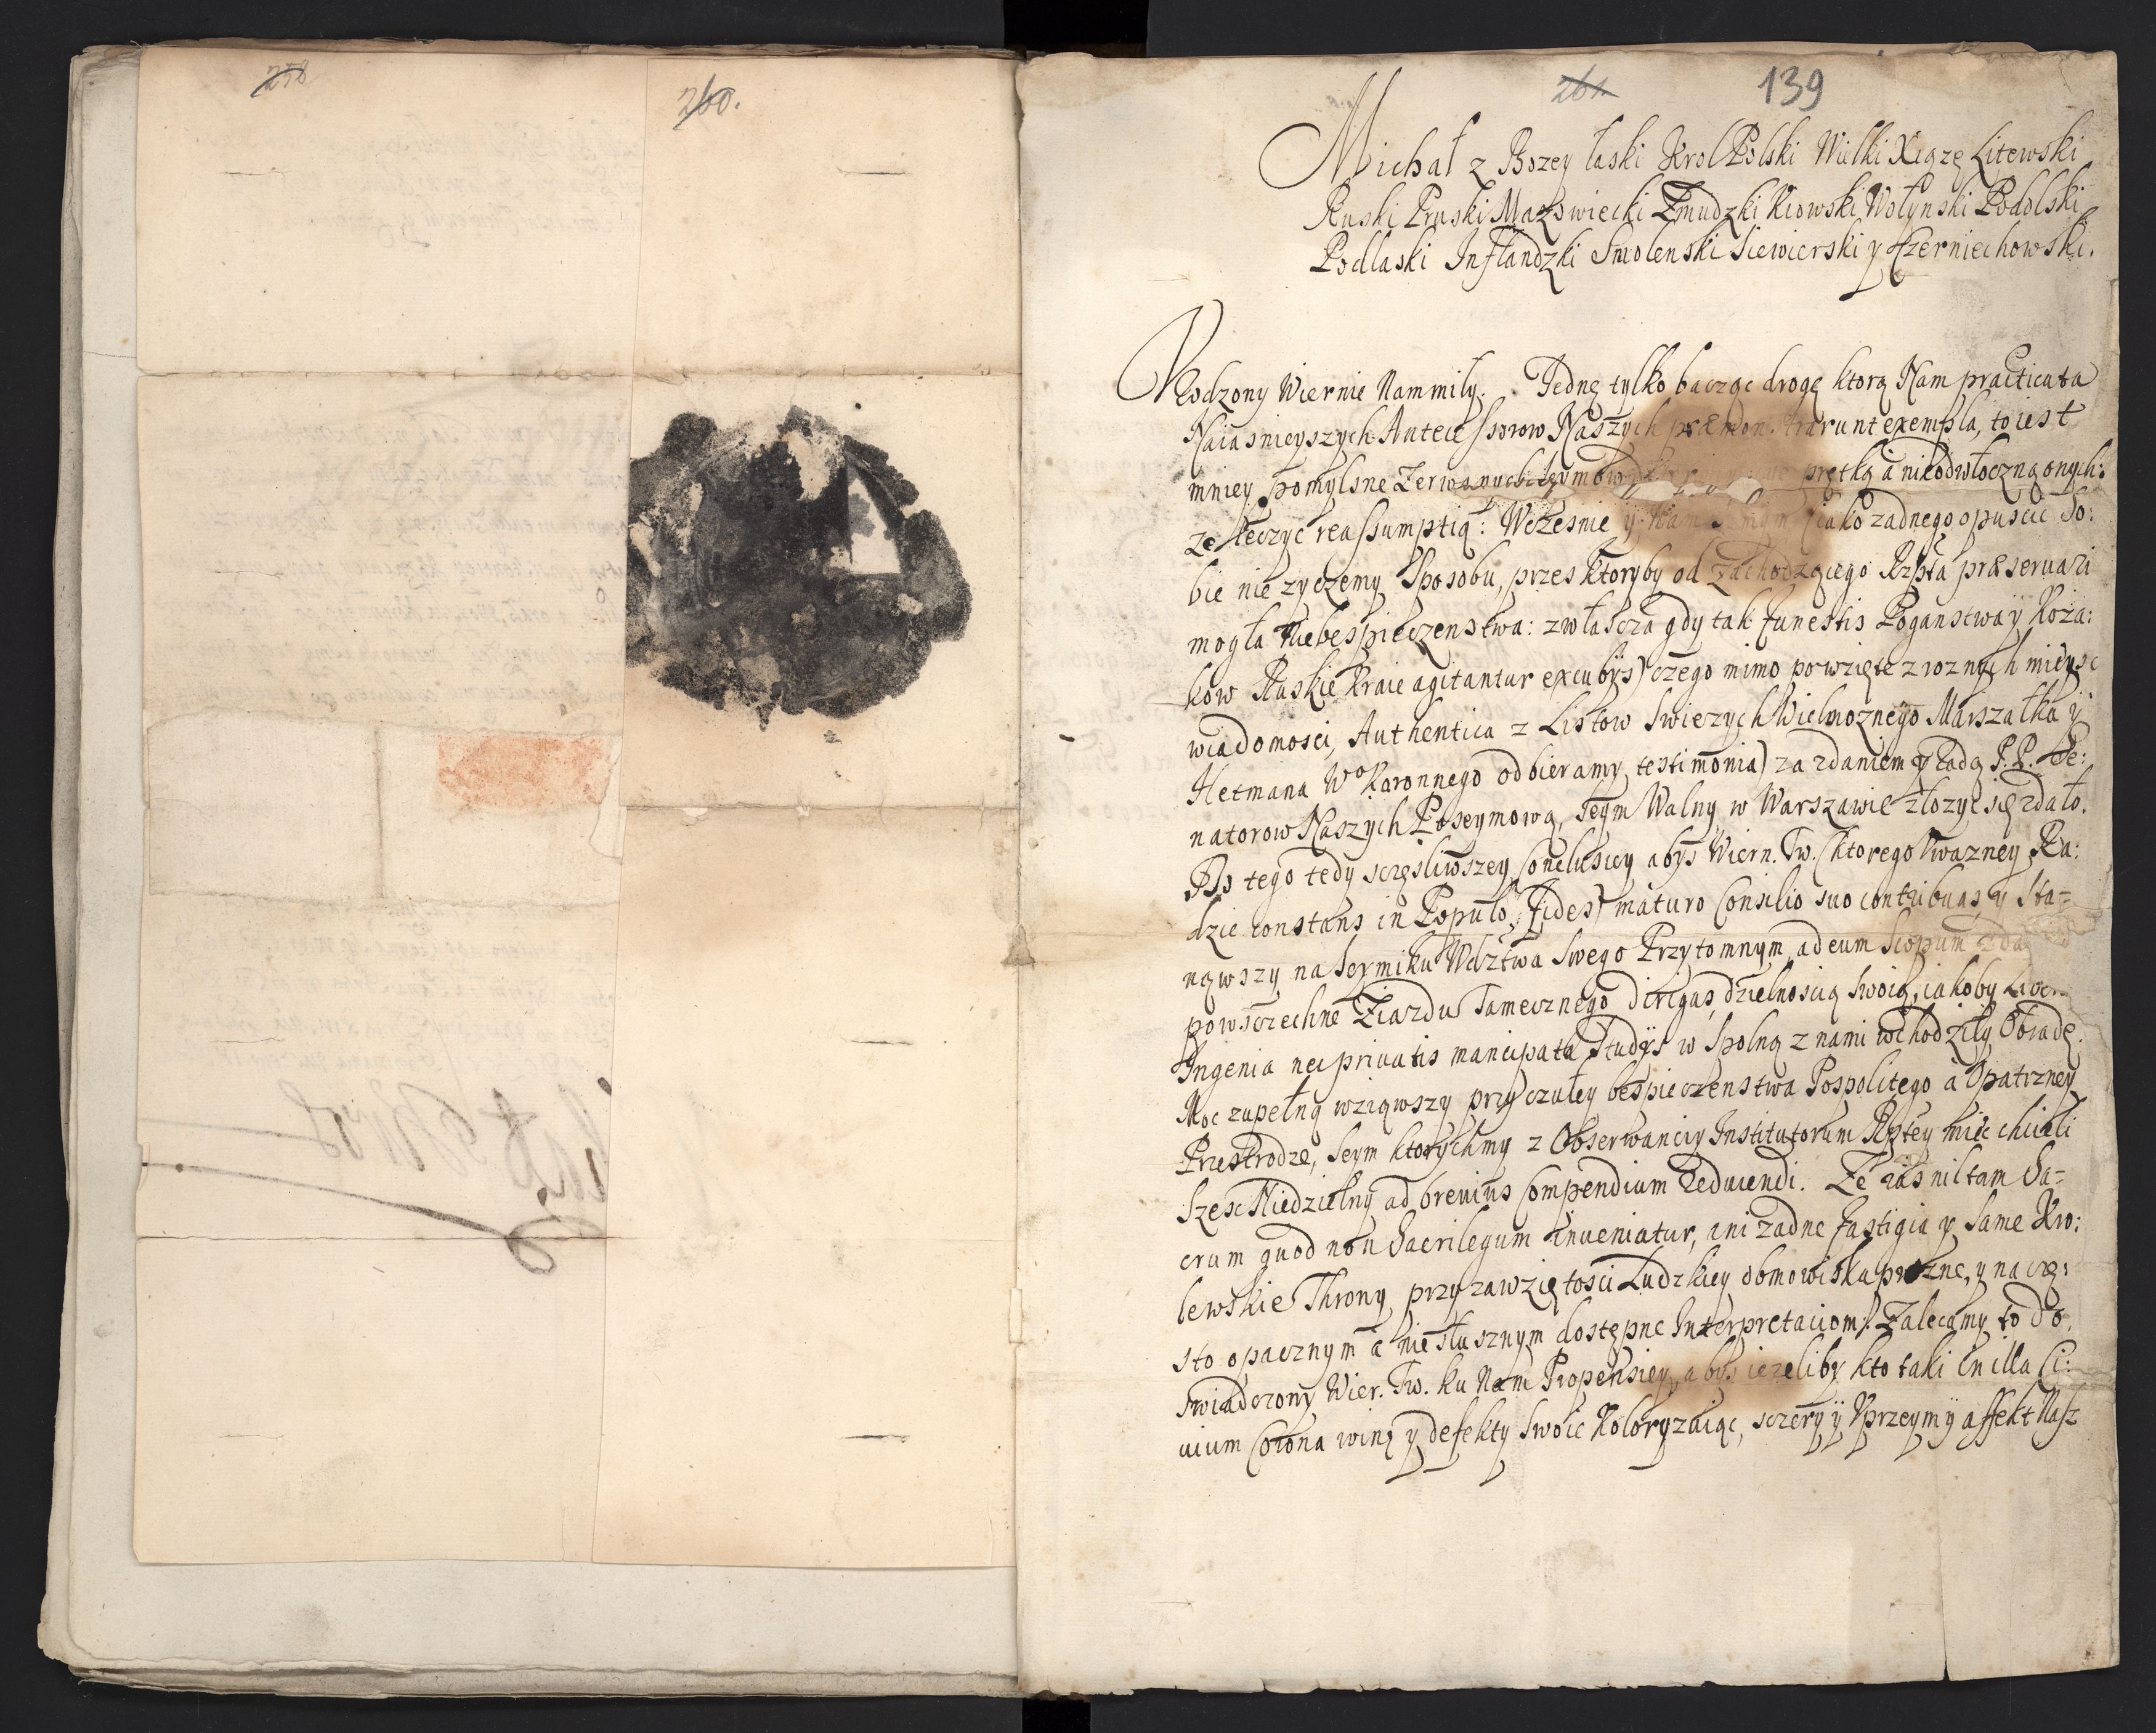 258
260.
261.
139
Michał z Bozey łaski Krol Polski Wielki Xiązę Litewski
Ruski Pruski Mazowiecki Zmudzki Kiowski Wołynski Podolski
Podlaski Inflandzki Smolenski Siewierski y Czerniechowski.
Vrodzony Wiernie Nam miły. Jednę tylko bacząc drogę ktorą Nam practicata
Naiasnieyszych Antecessorow Naszych præmonstrarunt exempla, to iest
mniey pomyslne Zerwanych Seymow prętką a nieodwłoczną onych:
ze leczyc reassumptią: Wczesnie y Nam Samym iako zadnego opuscic So:
bie nie zyczemy Sposobu, przes ktoryby od Zachodzącego Rzpta præseruari
mogła Niebespieczenstwa: zwłascza gdy tak funestis Poganstwa ÿ Koza:
kow Ruskie kraie agitantur excubÿs) czego mimo powzięte z roznych mieysc
wiadomosci, Authentica z Listow Swiezych Wielmoznego Marszałka ÿ
Hetmana Wo Koronnego odbieramy testimonia) za zdaniem y Radą P.P. Se:
natorow Naszych Poseymową, Seym Walny w Warszawie złozyc się zdało.
Do tego tedy scęsliwszey Conclusiey abys Wiern. Tw. (ktorego Uwazney Ra:
dzie constans in Populo Fides) maturo Consilio suo contribuas, y Sta=
nąwszy na Seymiku Wdztwa Swego Przytomnym, ad eum Scopum
powszechne Ziazdu Tamecznego dirigas, dzielnoscią Swoią, iakoby
Ingenia nec priuatis mancipata Studÿs w Spolną z nami wchodziły Obradę.
Moc zupełną wziąwszy przy czułey bespieczenstwa Pospolitego a Opatrzney
Przestrodze, Seym ktorychmy z Obserwanciy Institutorum Rptey miec chcieli
Szesc Niedzielny ad breuius Compendium Reducendi. Ze zas nil tam Sa=
crum quod non Sacrilegum inueniatur, ani zadne fastigia y same Kro:
lewskie Throny przy zawziętosci Ludzkiey obmowiska prozne, y na czę:
sto opacznym a niesłusznym dostępne Interpretaciom: Zalecamy to do
swiadczony Wier. Tw. ku Nam Propensiey, abys iezeliby kto taki in illa Ci:
uium Corona winę y defekty Swoie koloryzuiąc, sczery ÿ Uprzeymÿ affekt Nasz